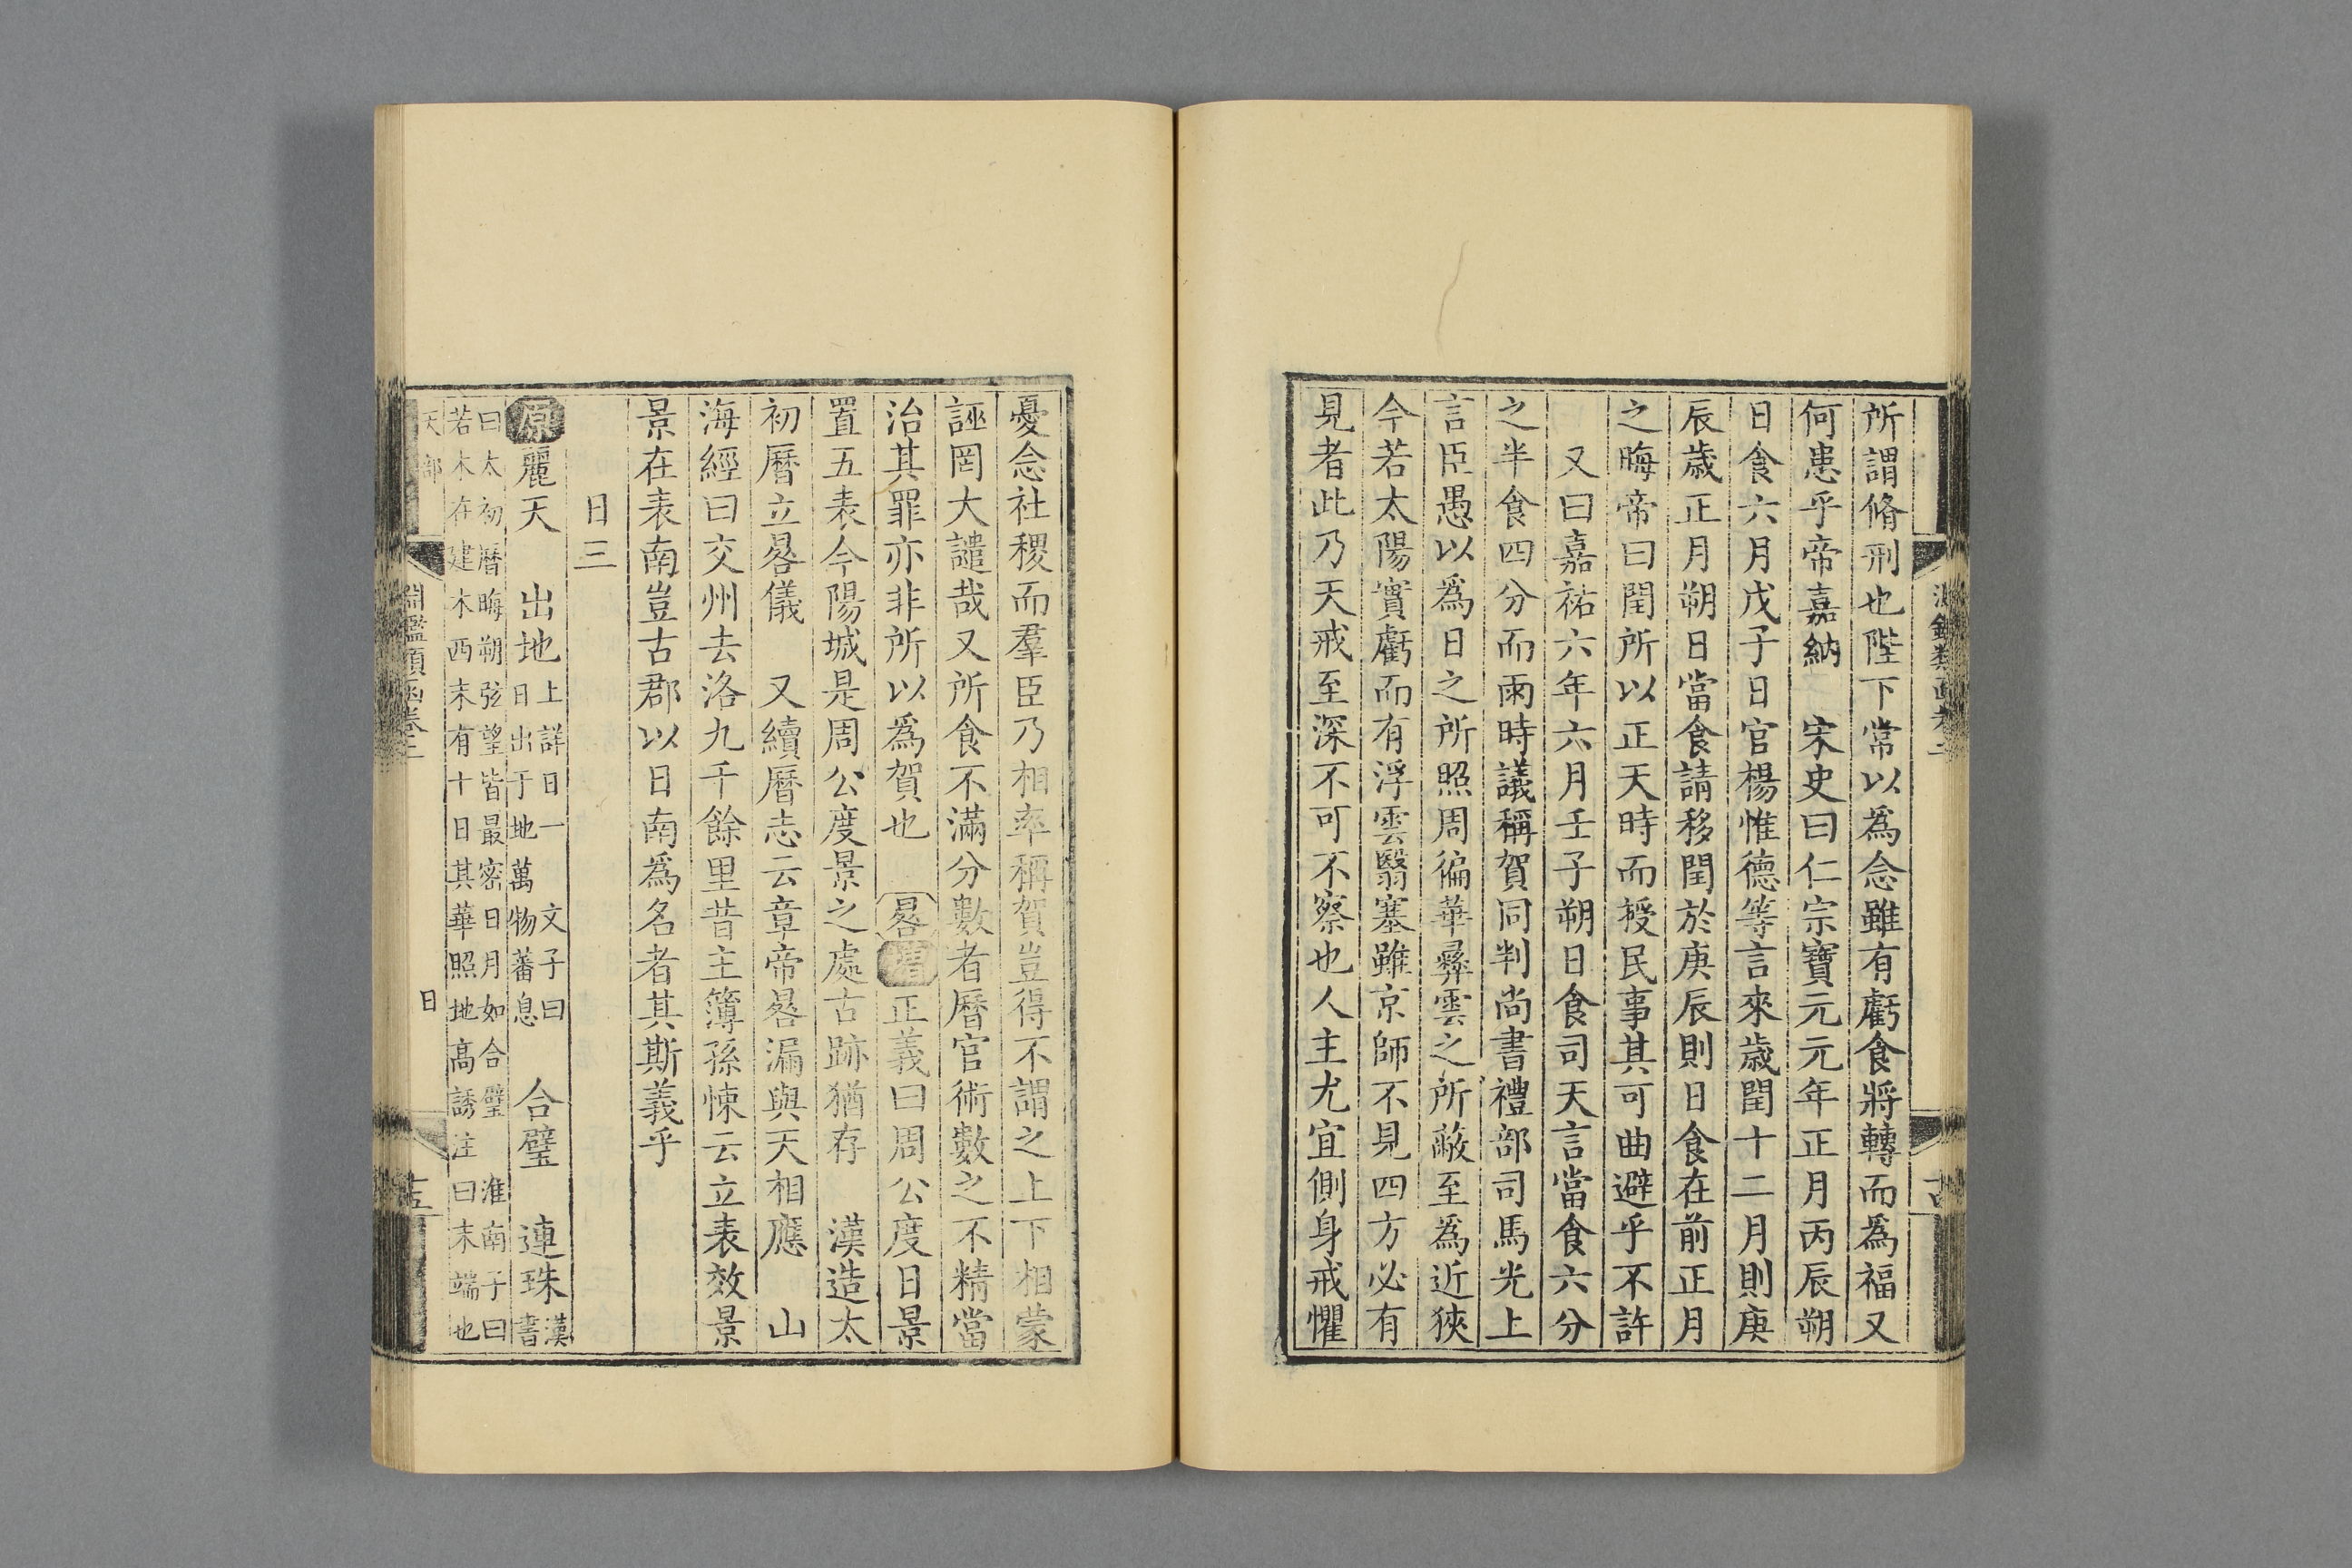 所謂脩刑也陛下常以為念雖有虧食將轉而為福又
何患乎帝嘉納　宋史曰仁宗寶元元年正月丙辰朔
日食六月戊子日官楊惟德等言來歲閏十二月則庚
辰歲正月朔日當食請移閏於庚辰則日食在前正月
之晦帝曰閏所以正天時而授民事其可曲避乎不許
又曰嘉祐六年六月壬子朔日食司天言當食六分
之半食四分而雨時議稱賀同判尚書禮部司馬光上
言臣愚以為日之所照周徧華彝雲之所蔽至為近狹
今若太陽實虧而有浮雲翳塞雖京師不見四方必有
見者此乃天戒至深不可不察也人主尤宜側身戒懼
憂念社稷而羣臣乃相率稱賀豈得不謂之上下相蒙
誣罔大譴哉又所食不滿分數者曆官術數之不精當
治其罪亦非所以為賀也　晷增正義曰周公度日景
置五表今陽城是周公度景之處古跡猶存　漢造太
初曆立晷儀　又續曆志云章帝晷漏與天相應　山
海經曰交州去洛九千餘里昔主簿孫悚云立表效景
景在表南豈古郡以日南為名者其斯義乎
日三
原麗天　出地上詳日一　文子曰日出于地萬物蕃息　合璧　連珠漢書
曰太初曆晦朔弦望皆最密日月如合璧　淮南子曰
若木在建木西末有十日其華照地高誘注曰末端也
天部
淵鑑類函卷二
日
十五